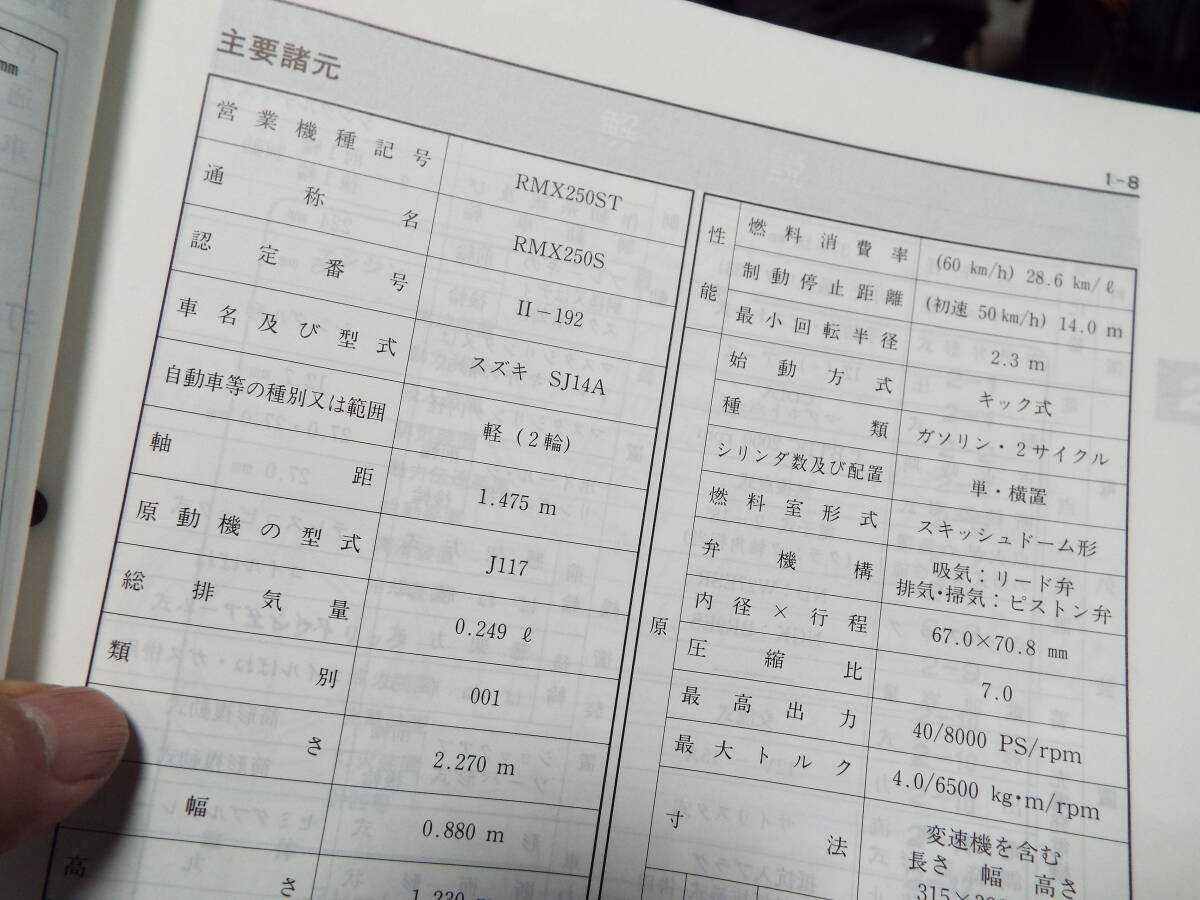 mm
主要諸元
1-8
営業機種記号 RMX250ST
通称名 RMX250S
認定番号 II-192
車名及び型式 スズキ SJ14A
自動車等の種別又は範囲 軽(2輪)
軸距 1.475 m
原動機の型式 J117
総排気量 0.249 ℓ
類別 001
さ 2.270 m
幅 0.880 m
高さ 1.230 m
性能
燃料消費率 (60 km/h) 28.6 km/ℓ
制動停止距離 (初速 50km/h) 14.0 m
最小回転半径 2.3 m
原
始動方式 キック式
種類 ガソリン・2サイクル
シリンダ数及び配置 単・横置
燃料室形式 スキッシュドーム形
弁機構 吸気：リード弁
排気・掃気：ピストン弁
内径×行程 67.0×70.8 mm
圧縮比 7.0
最高出力 40/8000 PS/rpm
最大トルク 4.0/6500 kg・m/rpm
寸法 変速機を含む
長さ 幅 高さ